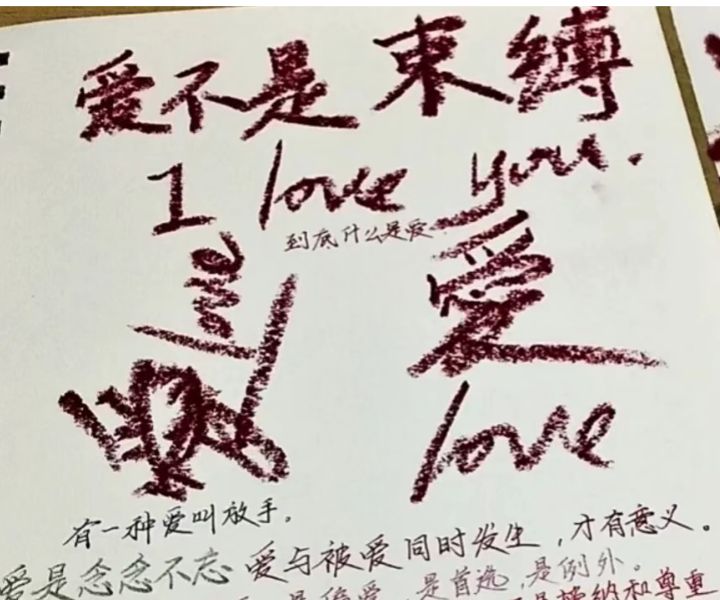 爱不是束缚
I love you.
到底什么是爱
爱
love
有一种爱叫放手。
爱是念念不忘 爱与被爱同时发生，才有意义。
是首选，是例外。
接纳和尊重